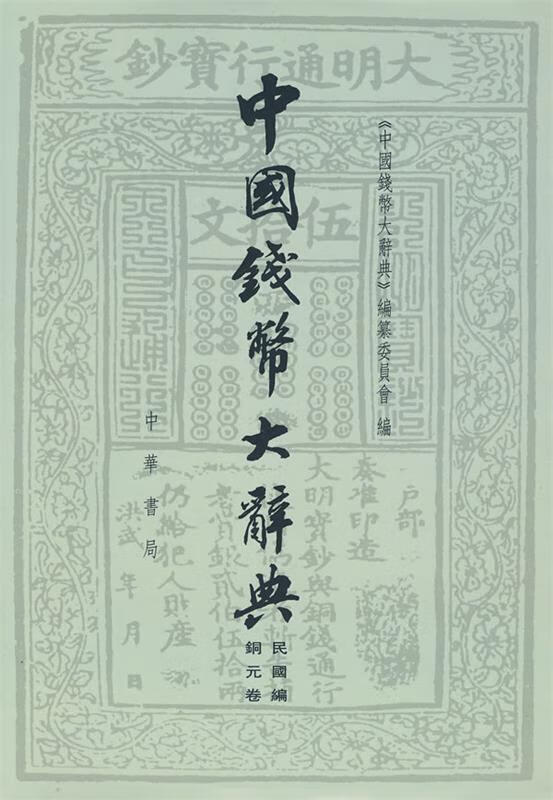 大明通行寶鈔
《中國錢幣大辭典》編纂委員會 編
中國錢幣大辭典
民國編
銅元卷
中華書局
伍拾文
戶部
奏准印造
大明寶鈔與銅錢通行
仍給犯人財産
洪武 年 月 日